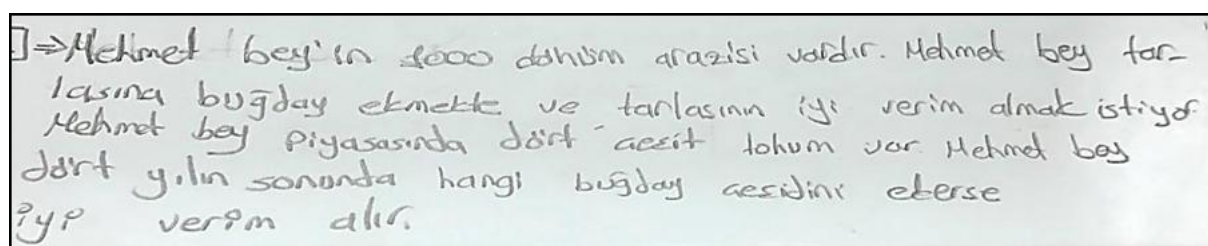 ]⇒Mehmet bey'in 1000 dönüm arazisi vardır. Mehmet bey tar-
lasına buğday ekmekte ve tarlasının iyi verim almak istiyor.
Mehmet bey Piyasasında dört çeşit tohum var. Mehmet bey
dört yılın sonunda hangi buğday çesidini ekerse
iyi verim alır.